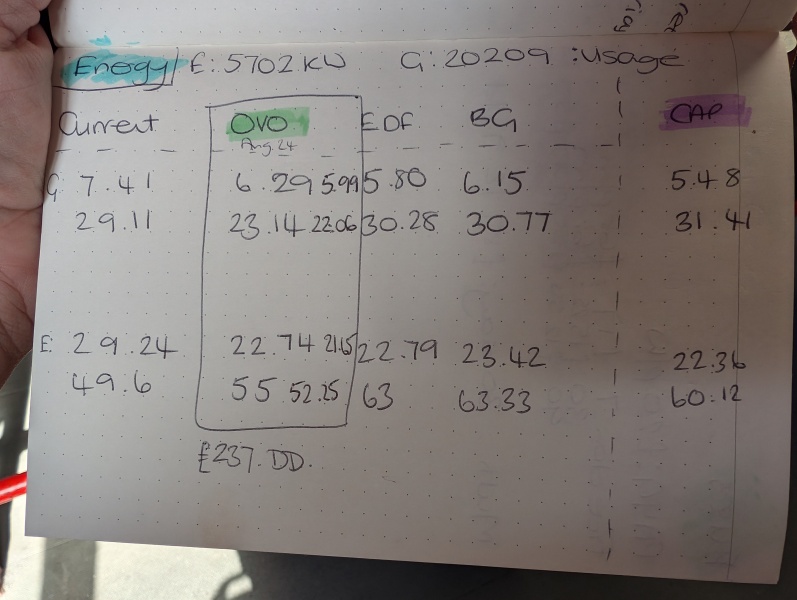 Energy E: 5702 KW G: 20209 : Usage
Current OVO EDF BG CAP
Aug. 24
G 7.41 6.29 5.99 5.80 6.15 5.48
29.11 23.14 22.06 30.28 30.77 31.41
E: 29.24 22.74 21.65 22.79 23.42 22.36
49.6 55 52.25 63 63.33 60.12
£237. DD.